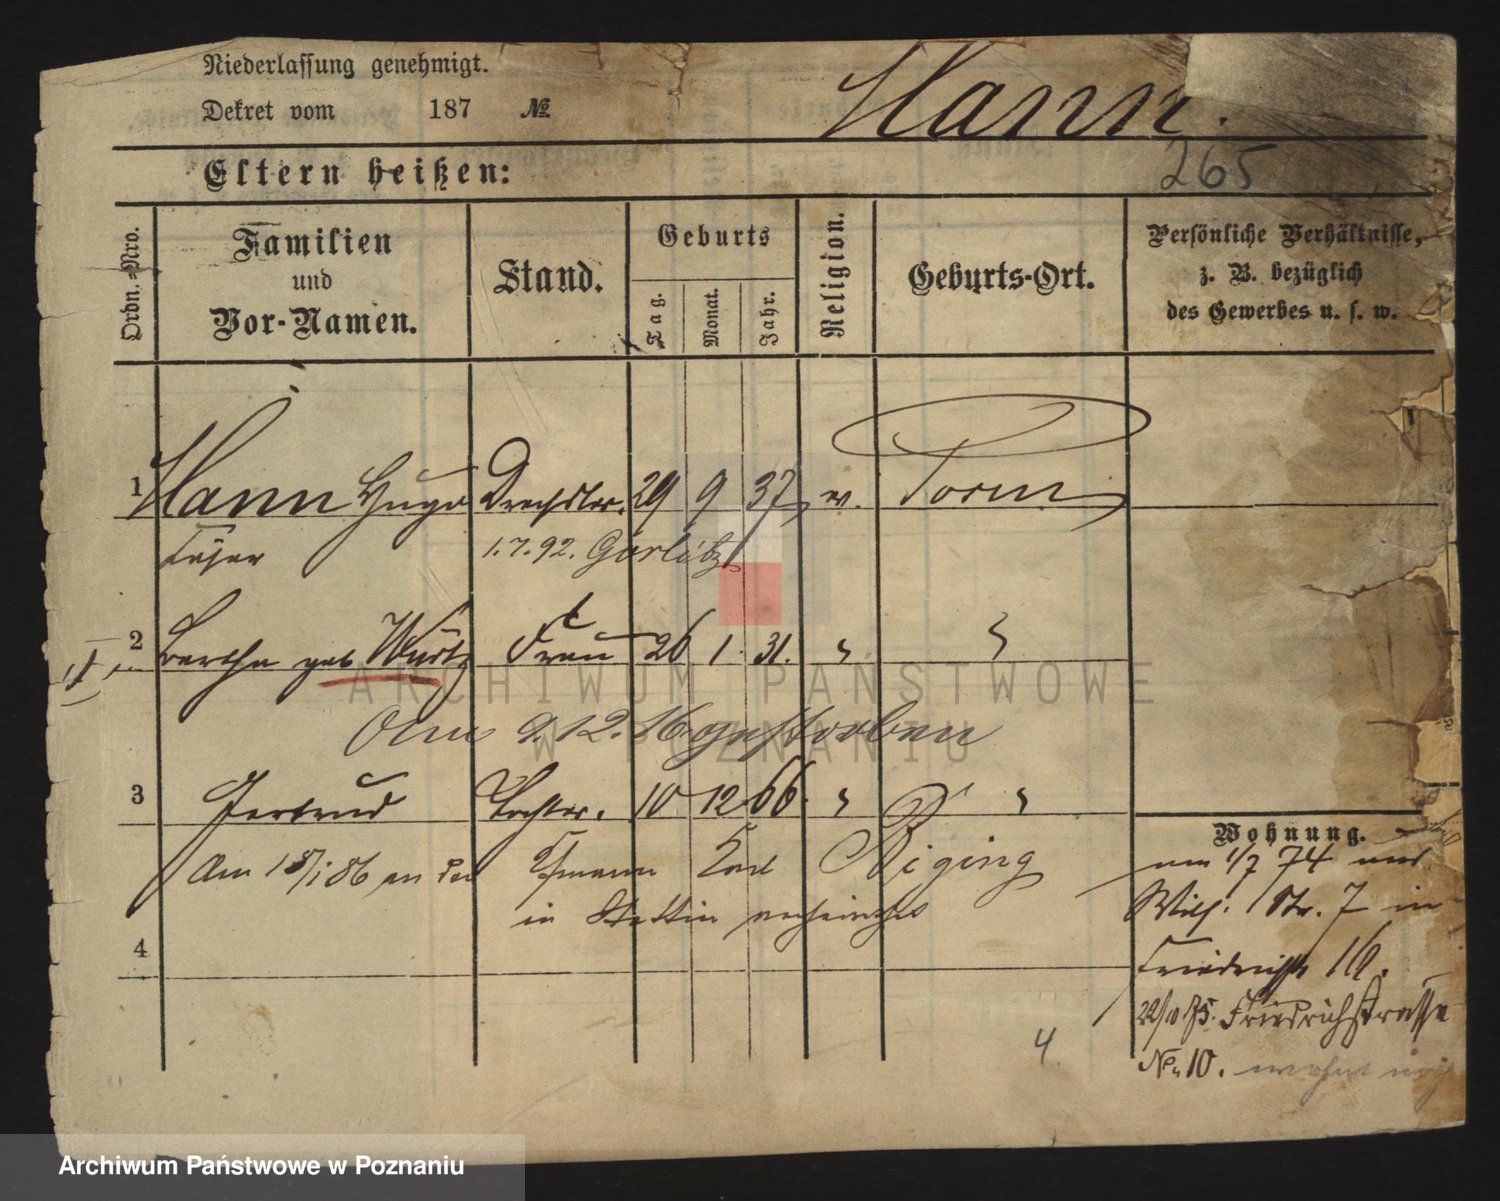 Niederlassung genehmigt.
Dekret vom 187 №
Hann.
Eltern heißen:
265
Ordn.-Nro.
Familien
und
Vor-Namen.
Stand.
Geburts
Tag.
Monat.
Jahr.
Religion.
Geburts-Ort.
Persönliche Verhältnisse,
z. B. bezüglich
des Gewerbes u. s. w.
1 Hann Hugo Drechsler. 29 9 37 ev. Posen
1.7.92. Görlitz
2 Bertha geb Würtz Frau 26 1. 31. " "
Am 9.12.76 gestorben
3 Gertrud Tochter. 10 12 66. " "
Am 18/1 86 an den Karl Riging
in Stettin verheirathet
4
Wohnung.
1/7 74
Wilh. Str. 7 in
Friedrichstr 16.
22/10 75. Friedrichstrasse
No. 10.
4
ARCHIWUM PAŃSTWOWE
W POZNANIU
Archiwum Państwowe w Poznaniu